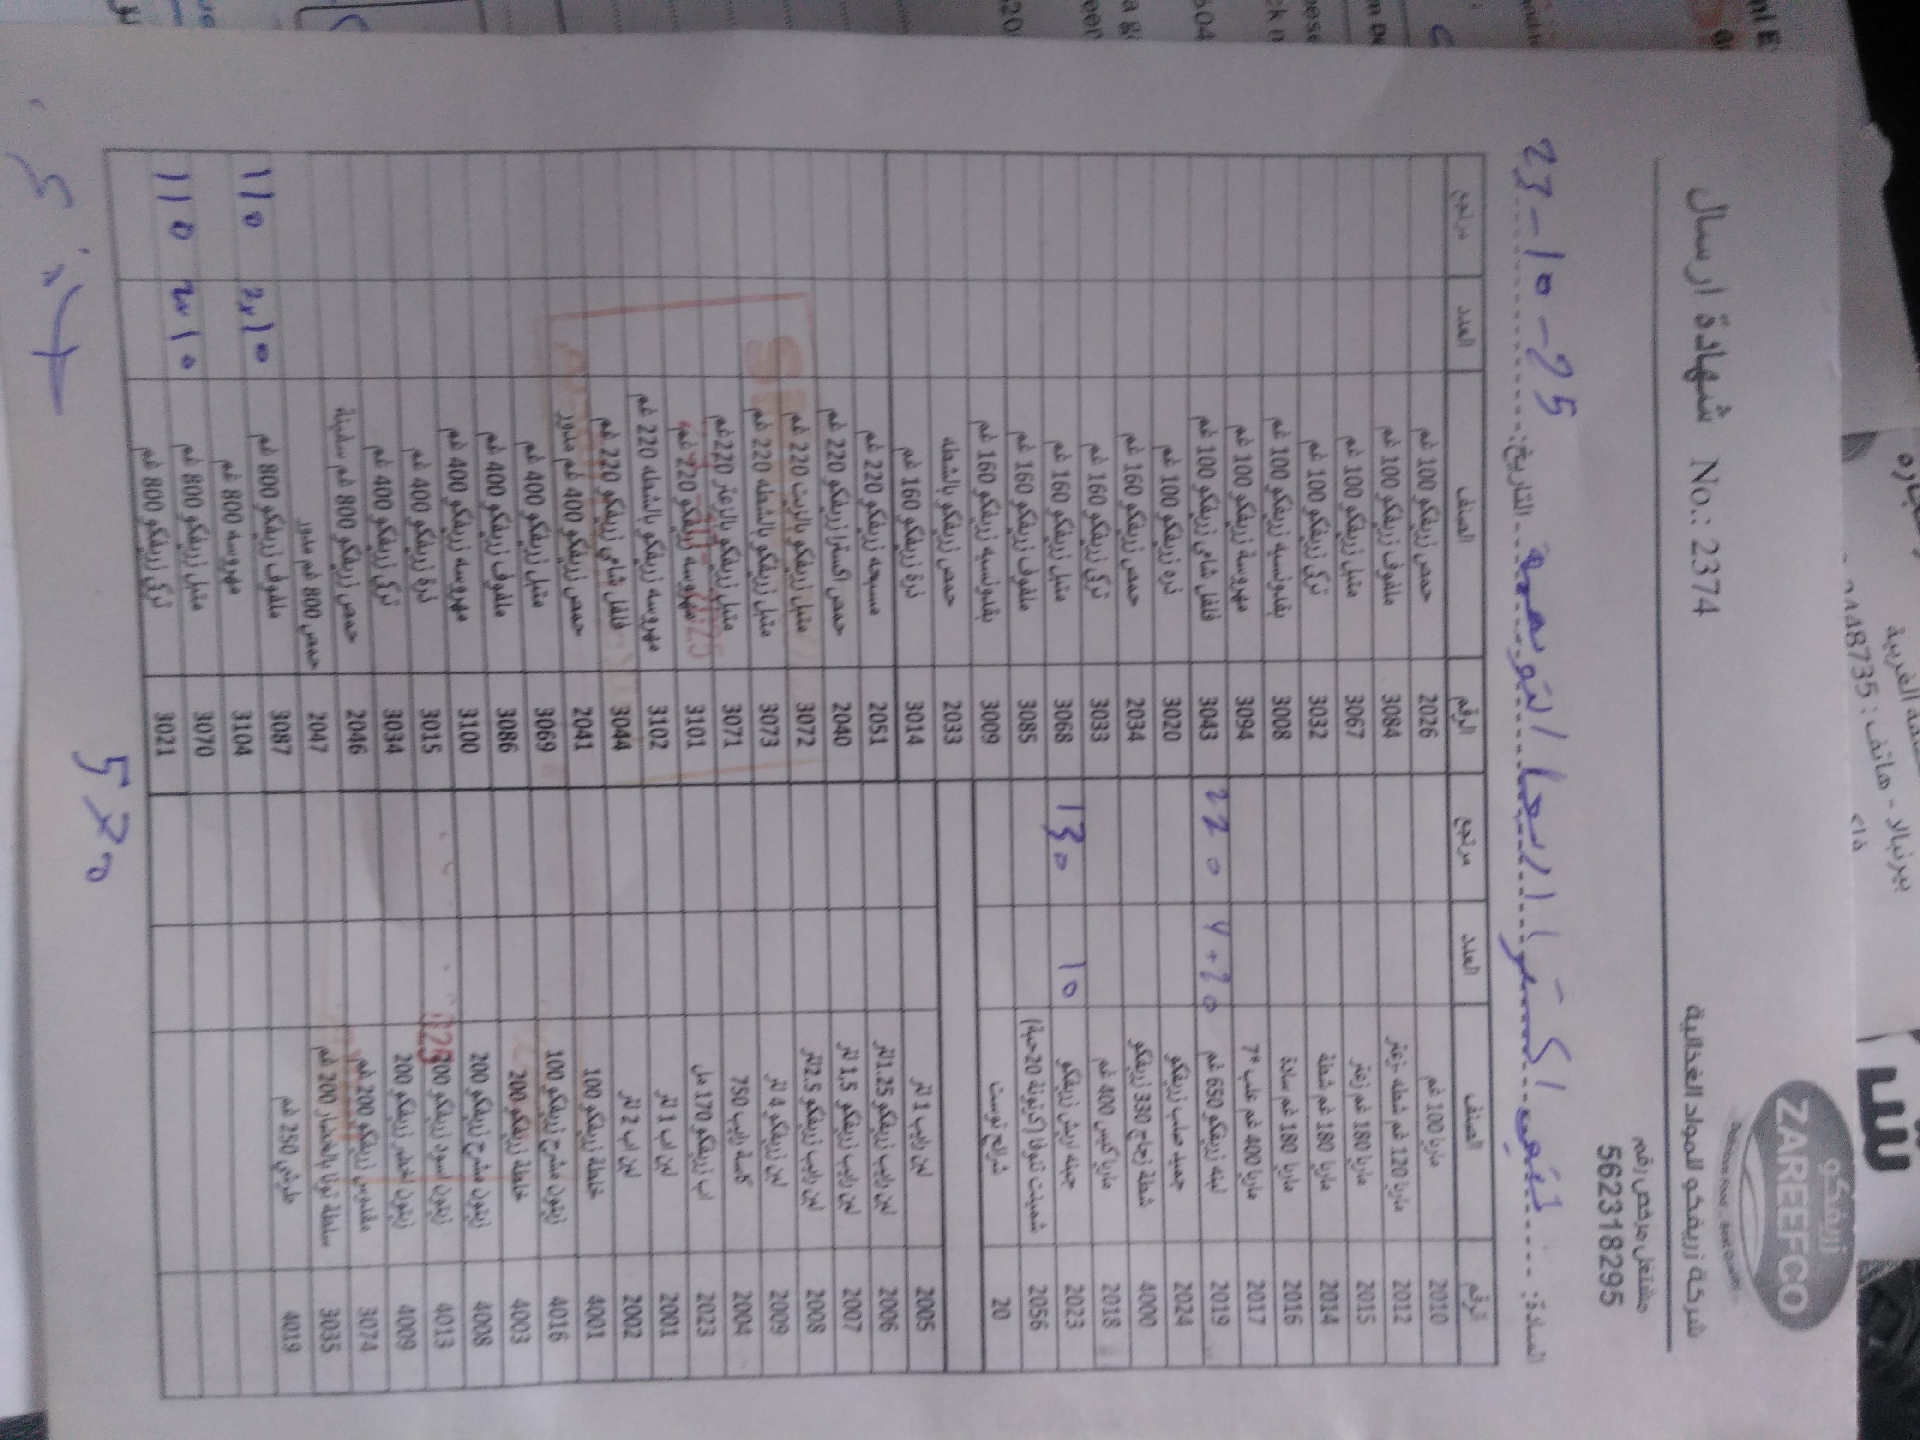 زريفكو
ZAREEFCO
شركة زريفكو للمواد الغذائية
مشتغل مرخص رقم
562318295
شهادة ارسال No.: 2374
السادة: التاريخ: 23-10-25
الرقم الصنف العدد مرتجع الرقم الصنف العدد مرتجع
2010 ماريا 100 غم 2026 حمص زريفكو 100 غم
2012 ماريا 120 غم شطه -زعتر 3084 ملفوف زريفكو 100 غم
2015 ماريا 180 غم زعتر 3067 متبل زريفكو 100 غم
2014 ماريا 180 غم شطة 3032 تركي زريفكو 100 غم
2016 ماريا 180 غم سادة 3008 بقدونسيه زريفكو 100 غم
2017 ماريا 400 غم علب *7 3094 مهروسة زريفكو 100 غم
2019 لبنه زريفكو 650 غم 4+20 220 3043 فلفل شامي زريفكو 100 غم
2024 جميد صلب زريفكو 3020 ذره زريفكو 100 غم
4000 شطة زجاج 330 زريفكو 2034 حمص زريفكو 160 غم
2018 ماريا كيس 400 غم 3033 تركي زريفكو 160 غم
2023 جبينه اريش زريفكو 10 130 3068 متبل زريفكو 160 غم
2056 شمينت تنوفا (كرتونة 20حبة) 3085 ملفوف زريفكو 160 غم
20 شرائح توست 3009 بقدونسيه زريفكو 160 غم
2033 حمص زريفكو بالشطه
2005 لبن رايب 1 لتر 3014 ذرة زريفكو 160 غم
2006 لبن رايب زريفكو 1.25لتر 2051 مسبحه زريفكو 220 غم
2007 لبن رايب زريفكو 1,5 لتر 2040 حمص اكسترا زريفكو 220 غم
2008 لبن رايب زريفكو 2.5لتر 3072 متبل زريفكو بالزيت 220 غم
2009 لبن زريفكو 4 لتر 3073 متبل زريفكو بالشطه 220 غم
2004 كاسة رايب 750 3071 متبل زريفكو بالزعتر 220غم
2023 اب زريفكو 170 مل 3101 مهروسه زريفكو 220 غم
2001 لبن اب 1 لتر 3102 مهروسه زريفكو بالشطه 220 غم
2002 لبن اب 2 لتر 3044 فلفل شامي زريفكو 220 غم
4001 خلطة زريفكو 100 2041 حمص زريفكو 400 غم مدور
4016 زيتون مشرح زريفكو 100 3069 متبل زريفكو 400 غم
4003 خلطة زريفكو 200 3086 ملفوف زريفكو 400 غم
4008 زيتون مشرح زريفكو 200 3100 مهروسه زريفكو 400 غم
4013 زيتون اسود زريفكو 200 3015 ذرة زريفكو 400 غم
4009 زيتون اخضر زريفكو 200 3034 تركي زريفكو 400 غم
3074 مقدوس زريفكو 200 غم 2046 حمص زريفكو 800 غم سفينة
3035 سلطة تونا بالخضار 200 غم 2047 حمص 800 غم مدور
4019 طرشي 250 غم 3087 ملفوف زريفكو 800 غم
3104 مهروسه 800 غم 110
3070 متبل زريفكو 800 غم
3021 تركي زريفكو 800 غم 110